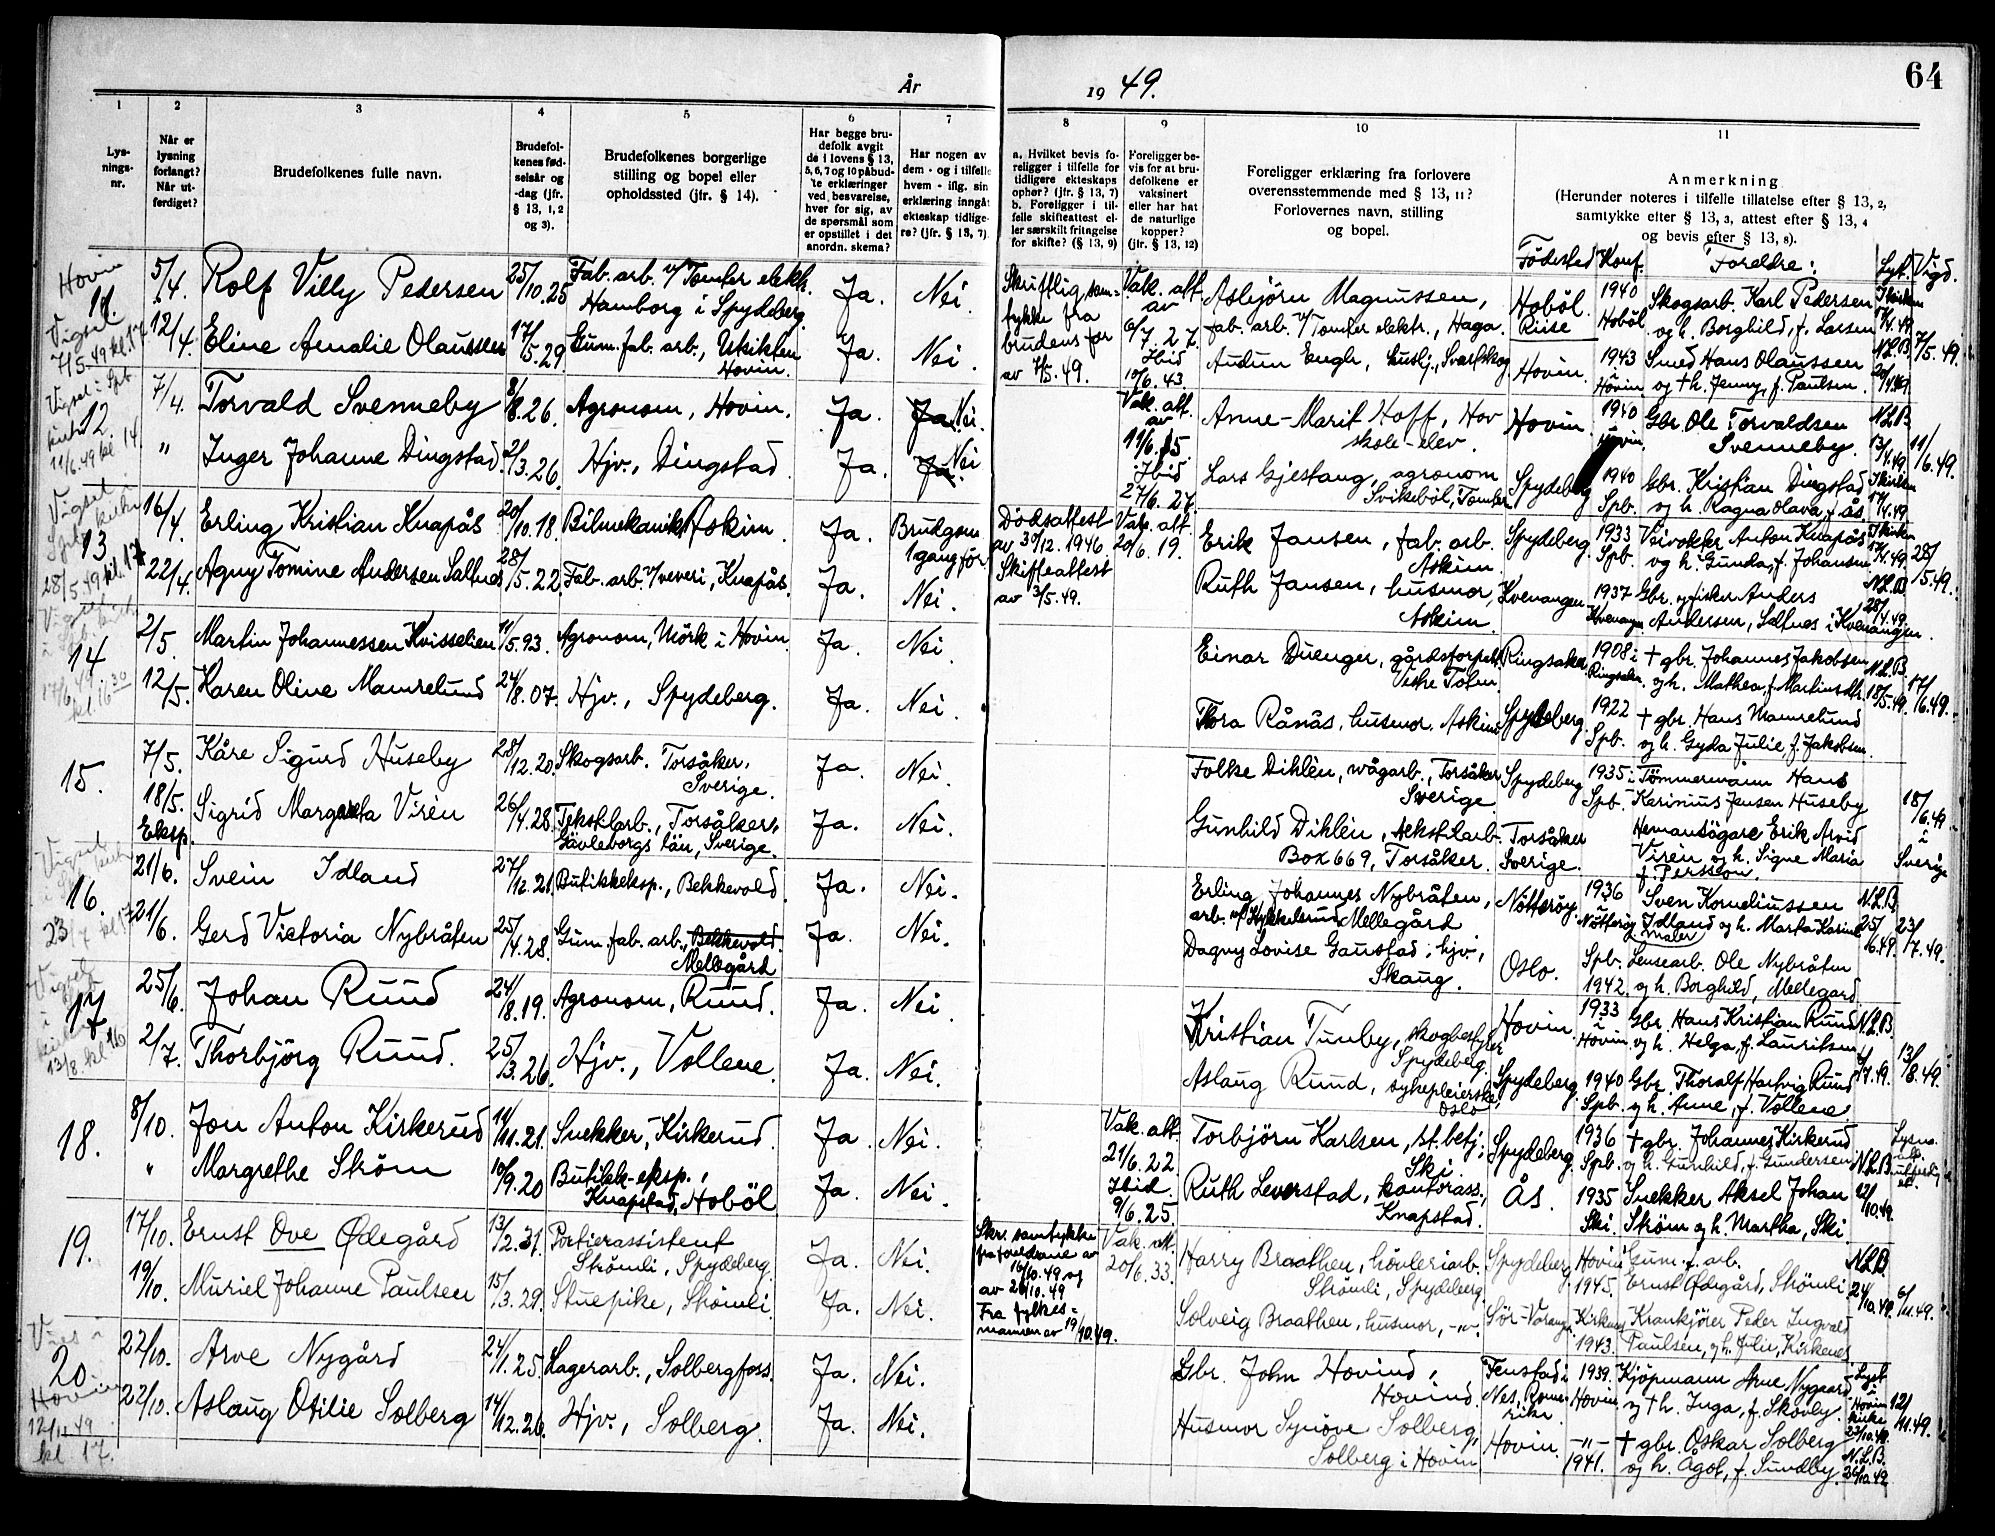 År 19 49.
64
1 2 3 4 5 6 7 8 9 10 11
Lysningsnr.
Når er lysning forlangt? Når utferdiget?
Brudefolkenes fulle navn.
Brudefolkenes fødselsår og -dag (jfr. § 13, 1, 2 og 3).
Brudefolkenes borgerlige stilling og bopel eller opholdssted (jfr. § 14).
Har begge brudefolk avgit de i lovens § 13, 5, 6, 7 og 10 påbudte erklæringer ved besvarelse, hver for sig, av de spørsmål som er opstillet i det anordn. skema?
Har nogen av dem - og i tilfelle hvem - iflg. sin erklæring inngåt ekteskap tidligere? (jfr. § 13, 7).
a. Hvilket bevis foreligger i tilfelle for tidligere ekteskaps ophør? (jfr. § 13, 7)
b. Foreligger i tilfelle skifteattest eller særskilt fritagelse for skifte? (§ 13, 9)
Foreligger bevis for at brudefolkene er vaksinert eller har hat de naturlige kopper? (jfr. § 13, 12)
Foreligger erklæring fra forlovere overensstemmende med § 13, 11?
Forlovernes navn, stilling og bopel.
Anmerkning
(Herunder noteres i tilfelle tillatelse efter § 13, 2, samtykke efter § 13, 3, attest efter § 13, 4 og bevis efter § 13, 8).
Födested Konf. Foreldre: Lyst. Vigd.
Hovin
11.
Vigsel
7/5.49 kl. 17
5/4. Rolf Villy Pedersen 25/10.25 Fab. arb. v/Tomter elekt. Hamborg i Spydeberg. Ja. Nei.
Skriftlig samtykke fra brudens far av 7/5.49.
Vak. att. av 6/7.27.
Asbjörn Magnussen, fab. arb. v/Tomter elektr., Haga.
Hoböl Riise 1940 Hoböl
Skogsarb. Karl Pedersen og h. Borghild, f. Larsen
7/5.49.
12/4. Eline Amalie Olaussen 17/5.29. Gum. fab. arb., Utsikten Hovin. Ja. Nei.
Ibid 10/6.43.
Audun Engh, husbj., Svarfskog
Hovin. 1943 i Hovin
Smed Hans Olaussen og † h. Jenny, f. Paulsen.
12.
Vigsel i Spb kirke 11/6.49 kl. 14
7/4. Torvald Svenneby 8/8.26. Agronom, Hovin. Ja. Nei.
Vak. att. av 11/6.15
Anne-Marit Hoff, Hov skole-elev.
Hovin 1940 i Hovin.
Gbr. Ole Torvaldsen Svenneby.
N.L.B. 13/4.49. 11/6.49.
" Inger Johanne Dingstad. 2/3.26. Hjv., Dingstad Ja. Nei
Ibid 27/6.27.
Lars Gjestang, agronom Svikeböl, Tomter
Spydeberg 1940 Spb.
Gbr. Kristian Dingstad og h. Ragna Olava, f. Ås
13.
Vigsel Spb. kirke 28/5.49 kl. 17
16/4. Erling Kristian Knapås 20/10.18. Bilmekanik. Askim. Ja. Brudgom 1 gang för.
Dödsattest av 30/12.1946 Skifteattest av 3/5.49.
Vak. att. 20/6.19.
Erik Jansen, fab. arb. Askim.
Spydeberg. 1933 Spb.
Veivokter Anton Knapås og h. Gunda, f. Johansen
28/5.49.
22/4. Agny Tomine Andersen Saltnes 28/5.22. Fab. arb. v/veveri, Knapås. Ja. Nei.
Ruth Jansen, husmor, Askim.
Kvenangen 1937
Gbr. og fisker Anders Andersen, Saltnes i Kvenangen.
N.L.B. 28/4.49.
14
17/6.49. kl. 16 30
2/5. Martin Johannessen Kvisselien 11/5.93. Agronom, Mörk i Hovin. Ja. Nei.
Einar Duenger, gårdsforpakt. Vestre Toten.
Ringsaker. 1908 i Ringsaker.
† gbr. Johannes Jakobsen og h. Mathea, f. Martinsdtr.
N.L.B. 18/5.49. 17/6.49.
12/5. Karen Oline Mamrelund 24/8.07. Hjv., Spydeberg. Ja. Nei.
Thora Rånås, husmor, Askim
Spydeberg. 1922 Spb.
† gbr. Hans Mamrelund og h. Gyda Julie, f. Jakobsen.
15.
7/5. Kåre Sigurd Huseby 28/12.20. Skogsarb. Torsåker, Sverige. Ja. Nei.
Folke Dihlén, vägarb., Torsåker Sverige
Spydeberg 1935 i Spb.
Tömmermann Hans Karinius Jensen Huseby
18/6.49 i Sverige
18/5. Eksp. Sigrid Margareta Virén 26/4.28. Tekstilarb., Torsåker, Gävleborgs län, Sverige. Ja. Nei.
Gunhild Dihlén, tekstilarb. Box 669, Torsåker.
Torsåker Sverige.
Hemansägare Erik Arvid Virén og h. Signe Maria f. Persson.
16.
23/7 kl 17
21/6. Svein Idland 27/12.21. Butikkeksp., Bekkevold. Ja. Nei.
Erling Johannes Nybråten, arb. v/Stykkelsrud Mellegård
Nötteröy. 1936 i Nötteröy
Sven Korneliussen Idland og h. Marta Karine
N.L.B. 25/6.49. 23/7.49.
21/6. Gerd Victoria Nybråten 25/4.28. Gum. fab. arb., Bekkevold. Mellegård Ja. Nei.
Dagny Lovise Gaustad, hjv., Skaug.
Oslo. Spb. 1942.
Lensearb. Ole Nybråten og h. Borghild, Mellegård.
17
Vigsel i kirke 13/8. kl 16
25/6. Johan Ruud 24/8.19. Agronom, Ruud. Ja. Nei.
Kristian Tunby, skogbestyrer Spydeberg.
Hovin. 1933 i Hovin
Gbr. Hans Kristian Ruud og h. Helga, f. Lauritsen
N.L.B. 4/7.49. 13/8.49.
2/7. Thorbjörg Ruud. 25/3.26. Hjv., Vollene. Ja. Nei.
Aslaug Ruud, sykepleierske, Oslo
Spydeberg. 1940 Spb.
Gbr. Thoralf Hartvig Ruud og h. Anne, f. Vollene
18.
8/10. Jon Anton Kirkerud 11/11.21. Snekker, Kirkerud. Ja. Nei.
Vak. att. 21/6.22.
Torbjörn Karlsen, st. betj. Ski.
Spydeberg. 1936 Spb.
† gbr. Johannes Kirkerud og h. Gunhild, f. Gundersen
N.L.B. 12/10.49.
" Margrethe Ström 10/9.20 Butikk-eksp., Knapstad, Hoböl Ja. Nei.
Ibid. 9/6.25.
Ruth Leverstad, kontorass., Knapstad.
Ås. 1935 Ski.
Snekker Aksel Johan Ström og h. Martha, Ski.
19.
17/10. Ernst Ove Ødegård 13/2.31. Portierassistent Strömli, Spydeberg. Ja. Nei.
Skr. samtykke fra foreldrene av 16/10.49 og av 20/10.49 Fra fylkesmannen av 19/10.49.
Vak. att. 20/6.33.
Harry Braathen, hövleriarb. Strömli, Spydeberg
Spydeberg Hovin 1945.
Gum. f. arb. Ernst Ødegård, Strömli
N.L.B. 24/10.49. 6/11.49.
19/10. Muriel Johanne Paulsen 15/3.29. Stuepike, Strömli Ja. Nei.
Solveig Braathen, husmor, -"-.
Sör-Varanger Kirkenes 1943.
Krankjörer Peder Ingvald Paulsen, og h. Julie, Kirkenes
20.
Vies i Hovin 12/11.49 kl. 17.
22/10. Arve Nygård 24/1.25. Lagerarb., Solbergfoss. Ja. Nei.
Gbr. John Hovind, Hovind.
Fenstad i Nes, Romerike 1939. Hovin.
Kjöpmann Arne Nygaard og † h. Inga, f. Skovly.
Lyst i Hovin kirke 23/10.49. 12/11.49.
22/10. Aslaug Otilie Solberg 14/12.26. Hjv., Solberg. Ja. Nei.
Husmor Synöve Solberg, Solberg i Hovin
Hovin. -"- 1941.
† gbr. Oskar Solberg og h. Ågot, f. Sundby.
N.L.B. 26/10.49